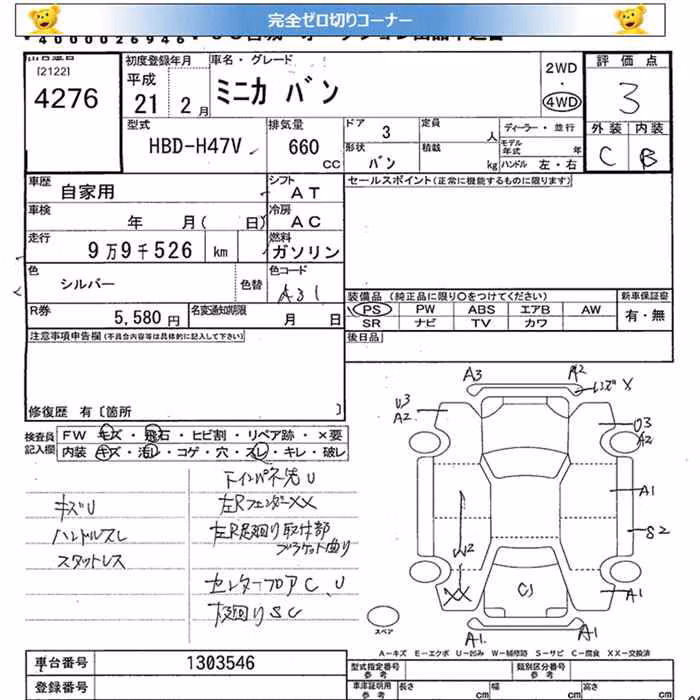 完全ゼロ切りコーナー
4000026946
[2122]
4276
初度登録年月
平成
21 2 月
車名・グレード
ミニカ バン
2WD
・
4WD
評価点
3
外装 内装
C B
型式
HBD-H47V
排気量
660 CC
ドア 3
定員 人
形状 バン
積載 kg
ディーラー・並行
モデル年式 年
ハンドル 左・右
車歴 自家用
シフト AT
車検 年 月( 日)
冷房 AC
走行 9万9千526 km
燃料 ガソリン
色 シルバー 色替
色コード A31
R券 5,580 円
名変通知期限 月 日
セールスポイント(正常に機能するものに限ります)
装備品(純正品に限り○をつけてください)
PS PW ABS エアB AW
SR ナビ TV カワ
新車保証書
有・無
後日品
注意事項申告欄(不具合内容等は具体的に記入して下さい)
修復歴 有〔箇所 〕
検査員記入欄
FW キズ・飛石・ヒビ割・リペア跡・×要
内装 キズ・汚レ・コゲ・穴・スレ・キレ・破レ
キズU
ハンドルスレ
スタットレス
下インパネ先U
左RフェンダーXX
左R足廻り取付部
ブラケット曲り
センターフロアC、U
下廻りSC
A3 A2
U3
A2
U3
A2
A1
S2
W2
XX
C1
A1
A1 A1
スペア
A-キズ E-エクボ U-凹み W-補修跡 S-サビ C-腐食 XX-交換済
車台番号 1303546
登録番号
型式指定番号
参考
類別区分番号
参考
車庫証明用
参考
長さ cm
幅 cm
高さ cm